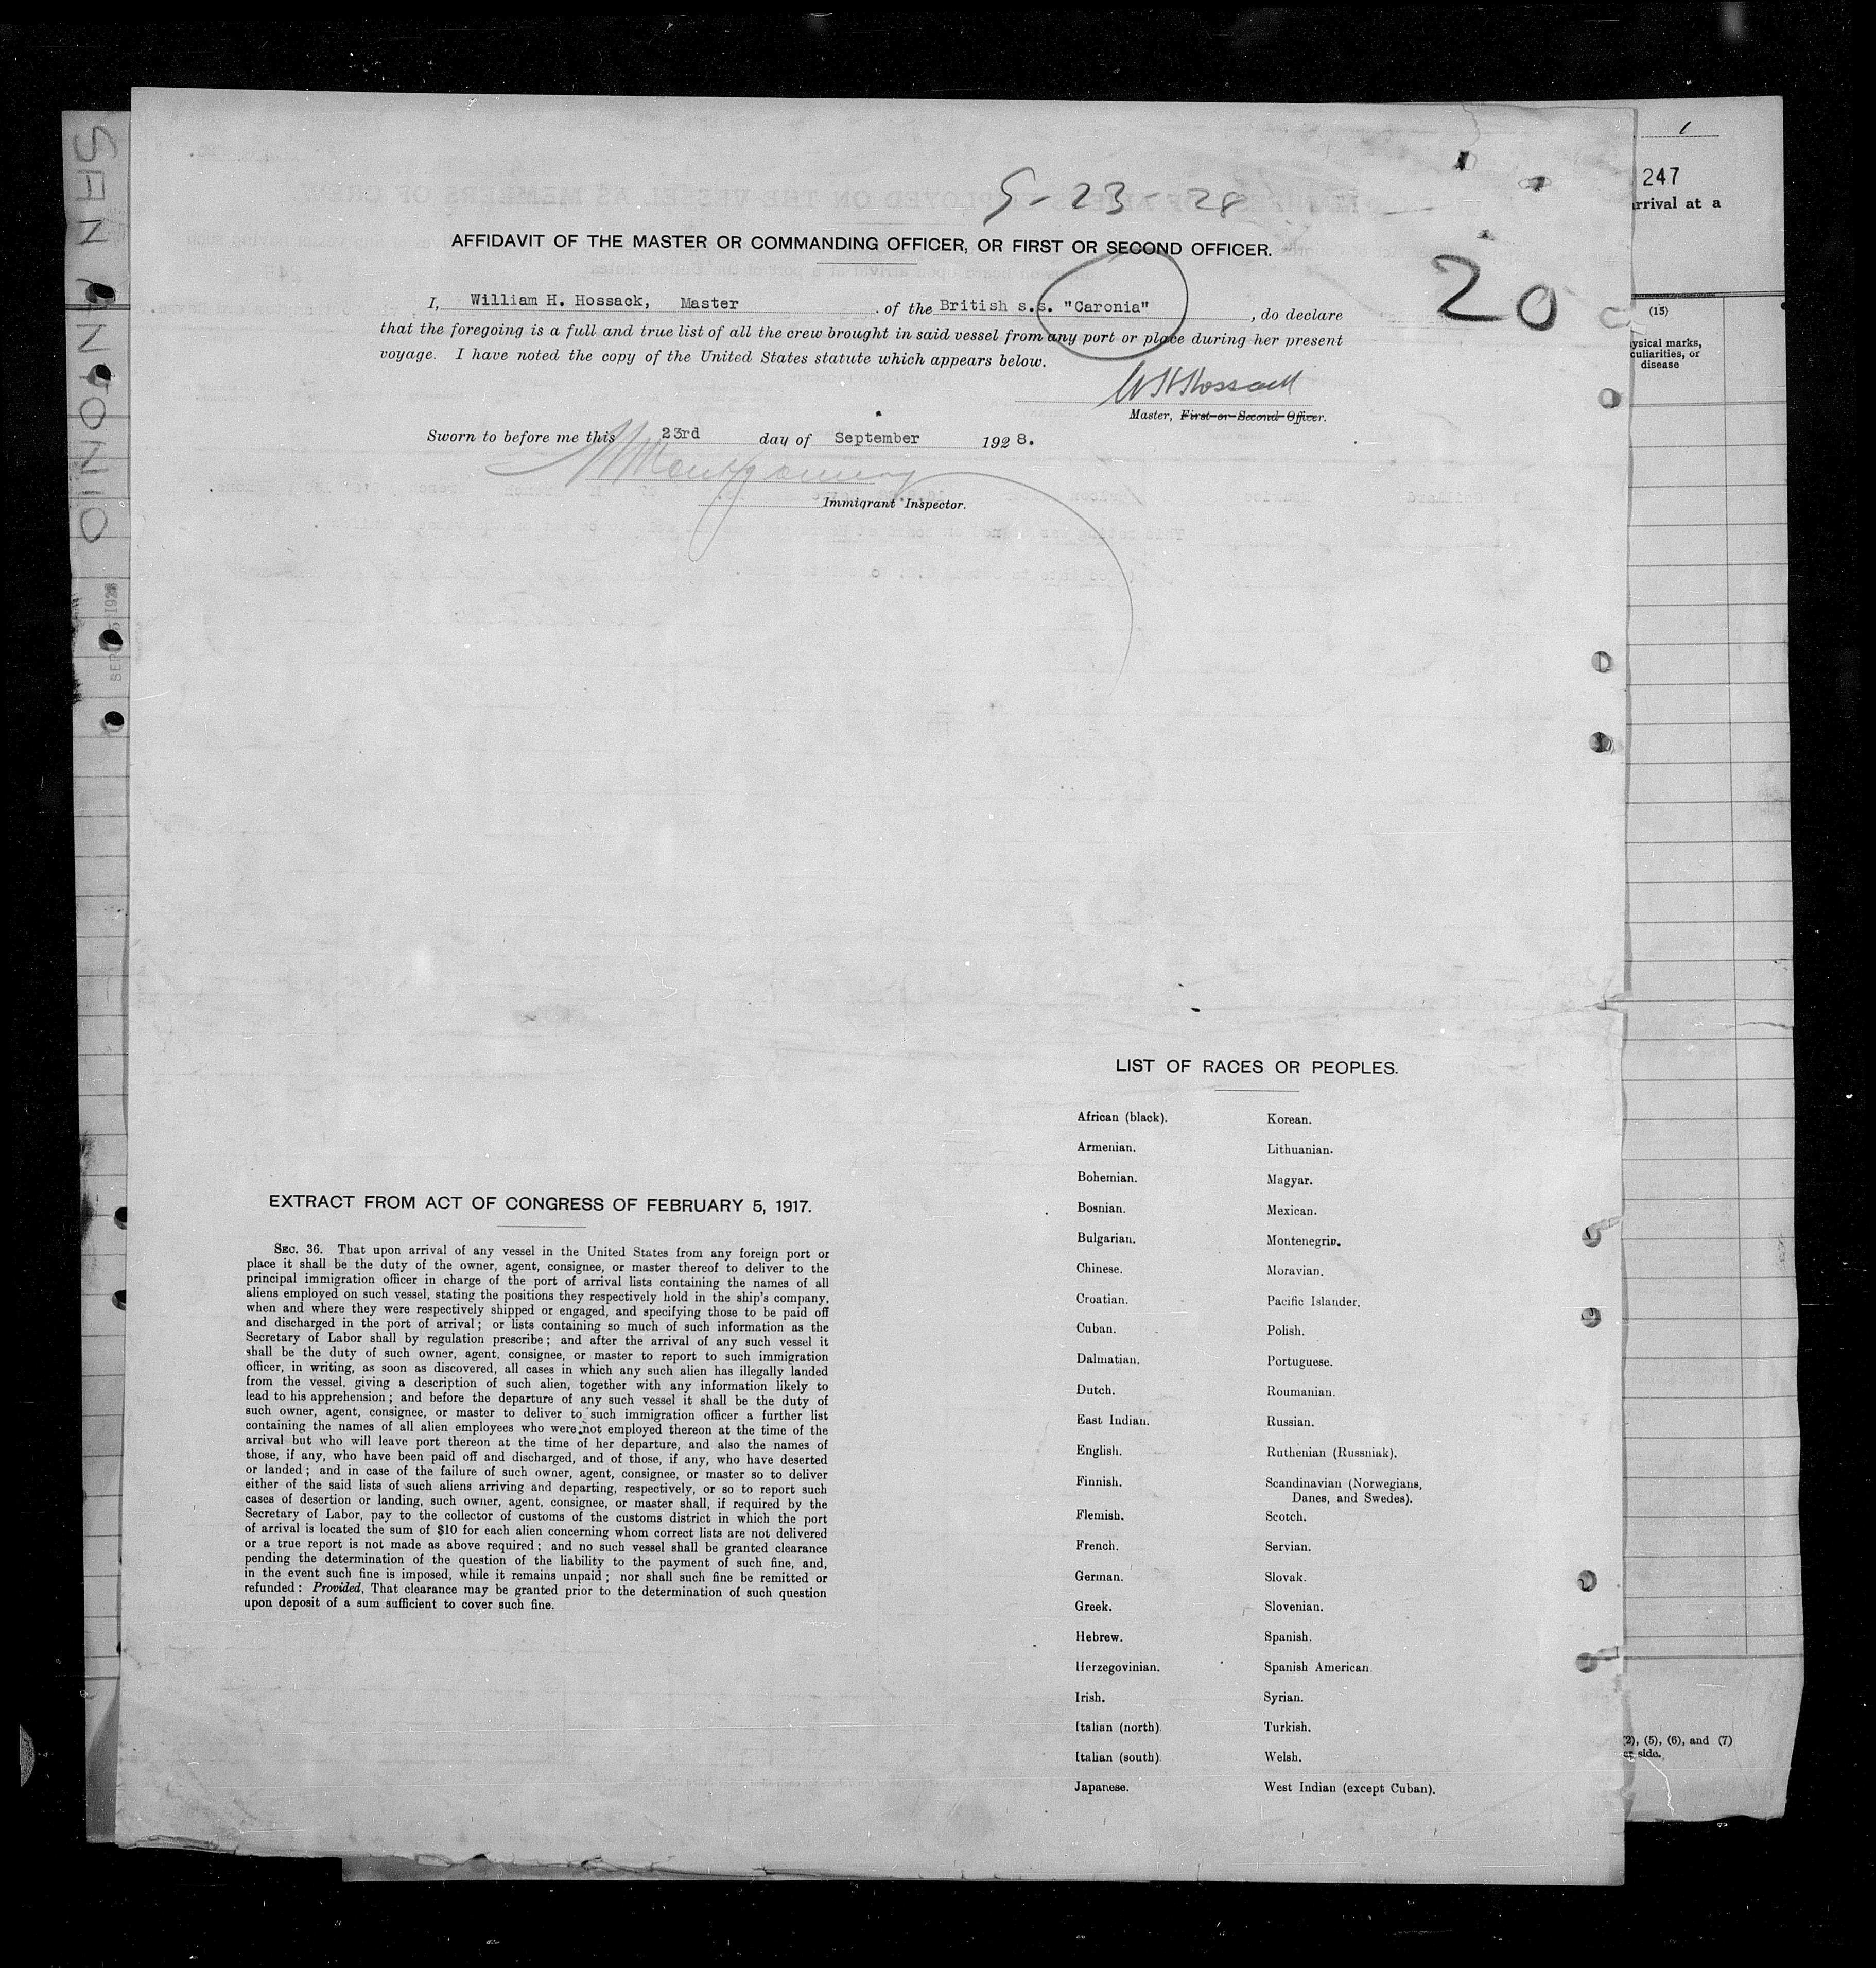 SAN ANTONIO
1
247
rrival at a
9-23-28
AFFIDAVIT OF THE MASTER OR COMMANDING OFFICER, OR FIRST OR SECOND OFFICER.
20
I, William H. Hossack, Master of the British s.s. "Caronia", do declare
that the foregoing is a full and true list of all the crew brought in said vessel from any port or place during her present
voyage. I have noted the copy of the United States statute which appears below.
(15)
ysical marks,
culiarities, or
disease
W H Hossack
Master, First or Second Officer.
Sworn to before me this 23rd day of September 1928.
Montgomery
Immigrant Inspector.
LIST OF RACES OR PEOPLES.
African (black). Korean.
Armenian. Lithuanian.
Bohemian. Magyar.
Bosnian. Mexican.
Bulgarian. Montenegrin.
Chinese. Moravian.
Croatian. Pacific Islander.
Cuban. Polish.
Dalmatian. Portuguese.
Dutch. Roumanian.
East Indian. Russian.
English. Ruthenian (Russniak).
Finnish. Scandinavian (Norwegians,
Danes, and Swedes).
Flemish. Scotch.
French. Servian.
German. Slovak.
Greek. Slovenian.
Hebrew. Spanish.
Herzegovinian. Spanish American.
Irish. Syrian.
Italian (north). Turkish.
Italian (south). Welsh.
Japanese. West Indian (except Cuban).
EXTRACT FROM ACT OF CONGRESS OF FEBRUARY 5, 1917.
SEC. 36. That upon arrival of any vessel in the United States from any foreign port or
place it shall be the duty of the owner, agent, consignee, or master thereof to deliver to the
principal immigration officer in charge of the port of arrival lists containing the names of all
aliens employed on such vessel, stating the positions they respectively hold in the ship's company,
when and where they were respectively shipped or engaged, and specifying those to be paid off
and discharged in the port of arrival; or lists containing so much of such information as the
Secretary of Labor shall by regulation prescribe; and after the arrival of any such vessel it
shall be the duty of such owner, agent, consignee, or master to report to such immigration
officer, in writing, as soon as discovered, all cases in which any such alien has illegally landed
from the vessel, giving a description of such alien, together with any information likely to
lead to his apprehension; and before the departure of any such vessel it shall be the duty of
such owner, agent, consignee, or master to deliver to such immigration officer a further list
containing the names of all alien employees who were not employed thereon at the time of the
arrival but who will leave port thereon at the time of her departure, and also the names of
those, if any, who have been paid off and discharged, and of those, if any, who have deserted
or landed; and in case of the failure of such owner, agent, consignee, or master so to deliver
either of the said lists of such aliens arriving and departing, respectively, or so to report such
cases of desertion or landing, such owner, agent, consignee, or master shall, if required by the
Secretary of Labor, pay to the collector of customs of the customs district in which the port
of arrival is located the sum of $10 for each alien concerning whom correct lists are not delivered
or a true report is not made as above required; and no such vessel shall be granted clearance
pending the determination of the question of the liability to the payment of such fine, and,
in the event such fine is imposed, while it remains unpaid; nor shall such fine be remitted or
refunded: Provided, That clearance may be granted prior to the determination of such question
upon deposit of a sum sufficient to cover such fine.
(2), (5), (6), and (7)
er side.